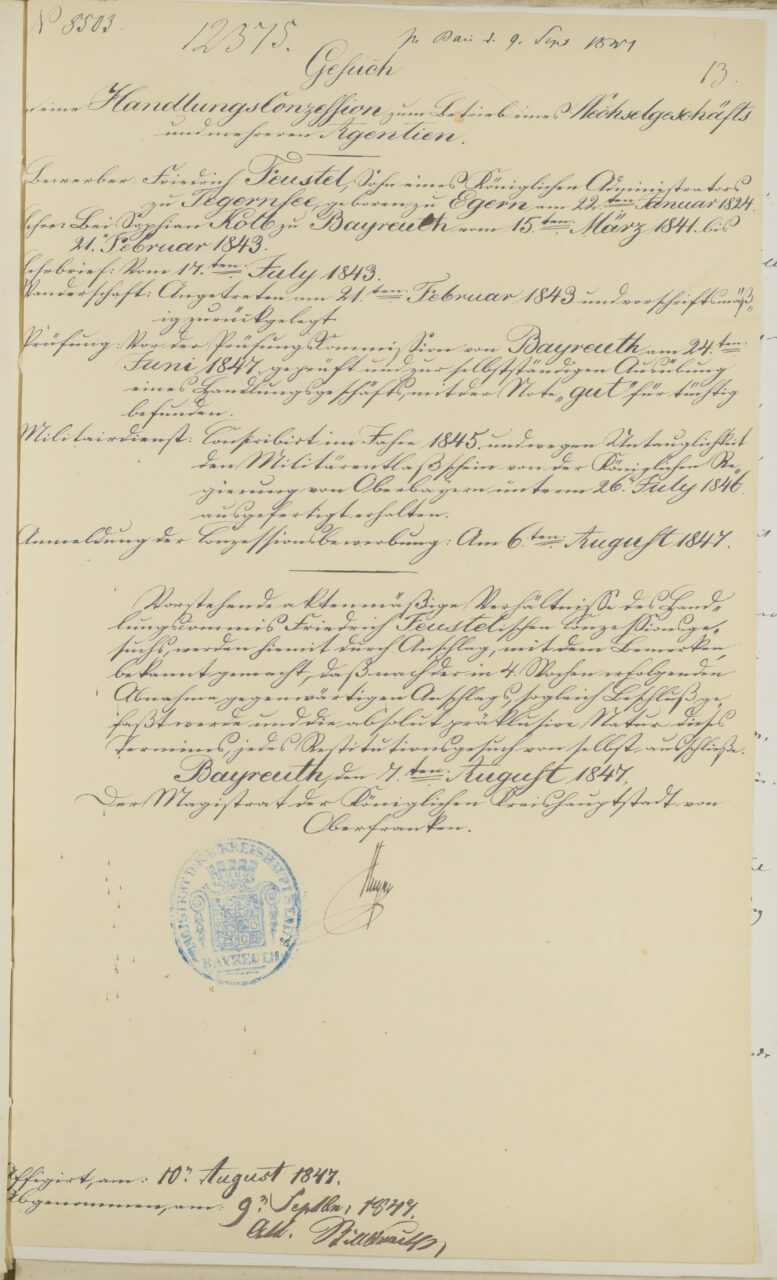 N 8503
12375.
pr. Bai d. 9. Sept 1847
13.
Gesuch
eine Handlungs Conzession zum Betrieb eines Wechselgeschäfts
und mehreren Agentien.
Bewerber: Friedrich Feustel, Sohn eines Königlichen Administrators
zu Tegernsee, geboren zu Egern am 22.ten Januar 1824.
Lehre: Bei Sophian Kolb zu Bayreuth vom 15.ten März 1841. bis
21. Februar 1843.
Lehrbrief: Vom 17.ten July 1843.
Wanderschaft: Angetreten am 21.ten Februar 1843 und vorschriftsmäß„
ig zurückgelegt
Prüfung: Vor der Prüfungscommission von Bayreuth am 24.ten
Juni 1847. geprüft und zur selbstständigen Ausübung
eines Handlungsgeschäfts, mit der Note „gut" für tüchtig
befunden.
Militairdienst: Conscribirt im Jahre 1845. und wegen Untauglichkeit
den Militärentlaßschein von der Königlichen Re„
gierung von Oberbayern unterm 26. July 1846.
ausgefertigt erhalten.
Anmeldung der Conzessionsbewerbung: Am 6.ten August 1847.
Vorstehende aktenmäßige Verhältnisse des Hand„
lungscommis Friedrich Feustelischen Conzessionsge„
suchs, werden hiemit durch Anschlag, mit dem Bemerken
bekannt gemacht, daß nach der in 4. Wochen erfolgenden
Abnahme gegenwärtigen Anschlags, sogleich Beschluß ge„
faßt werde und die absolut präklusive Natur dieses
Termins, jedes Restitutionsgesuch von selbst ausschließe.
Bayreuth, den 7.ten August 1847.
Der Magistrat der Königlichen Kreishauptstadt von
Oberfranken.
MAGISTRAT D. K. B. KREISHAUPTSTADT
BAYREUTH
Affigirt, am: 10. August 1847.
Abgenommen, am: 9. Septbr. 1847.